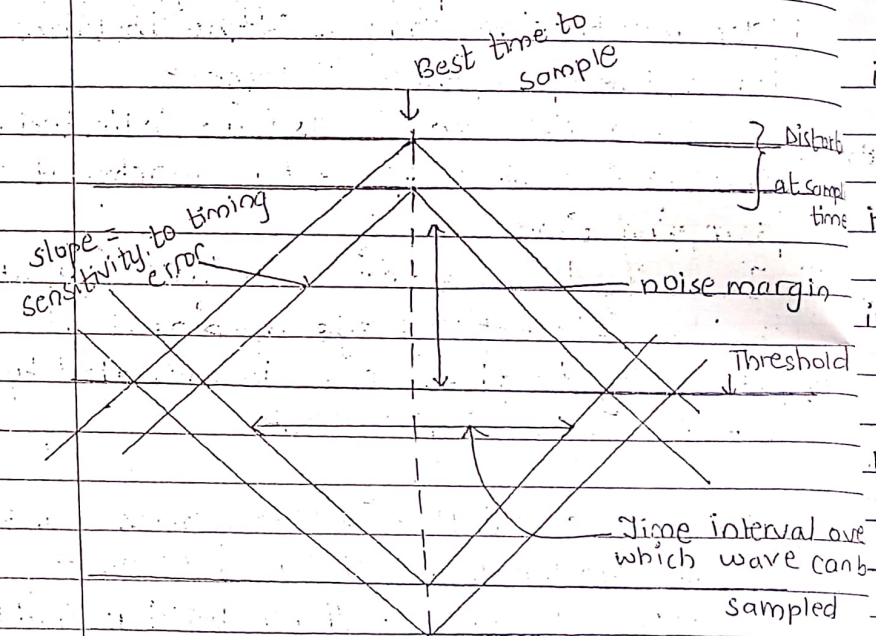 Best time to
sample
Distorb
at sampl
time
slope =
sensitivity to timing
error
noise margin
Threshold
Time interval ove
which wave canb
sampled